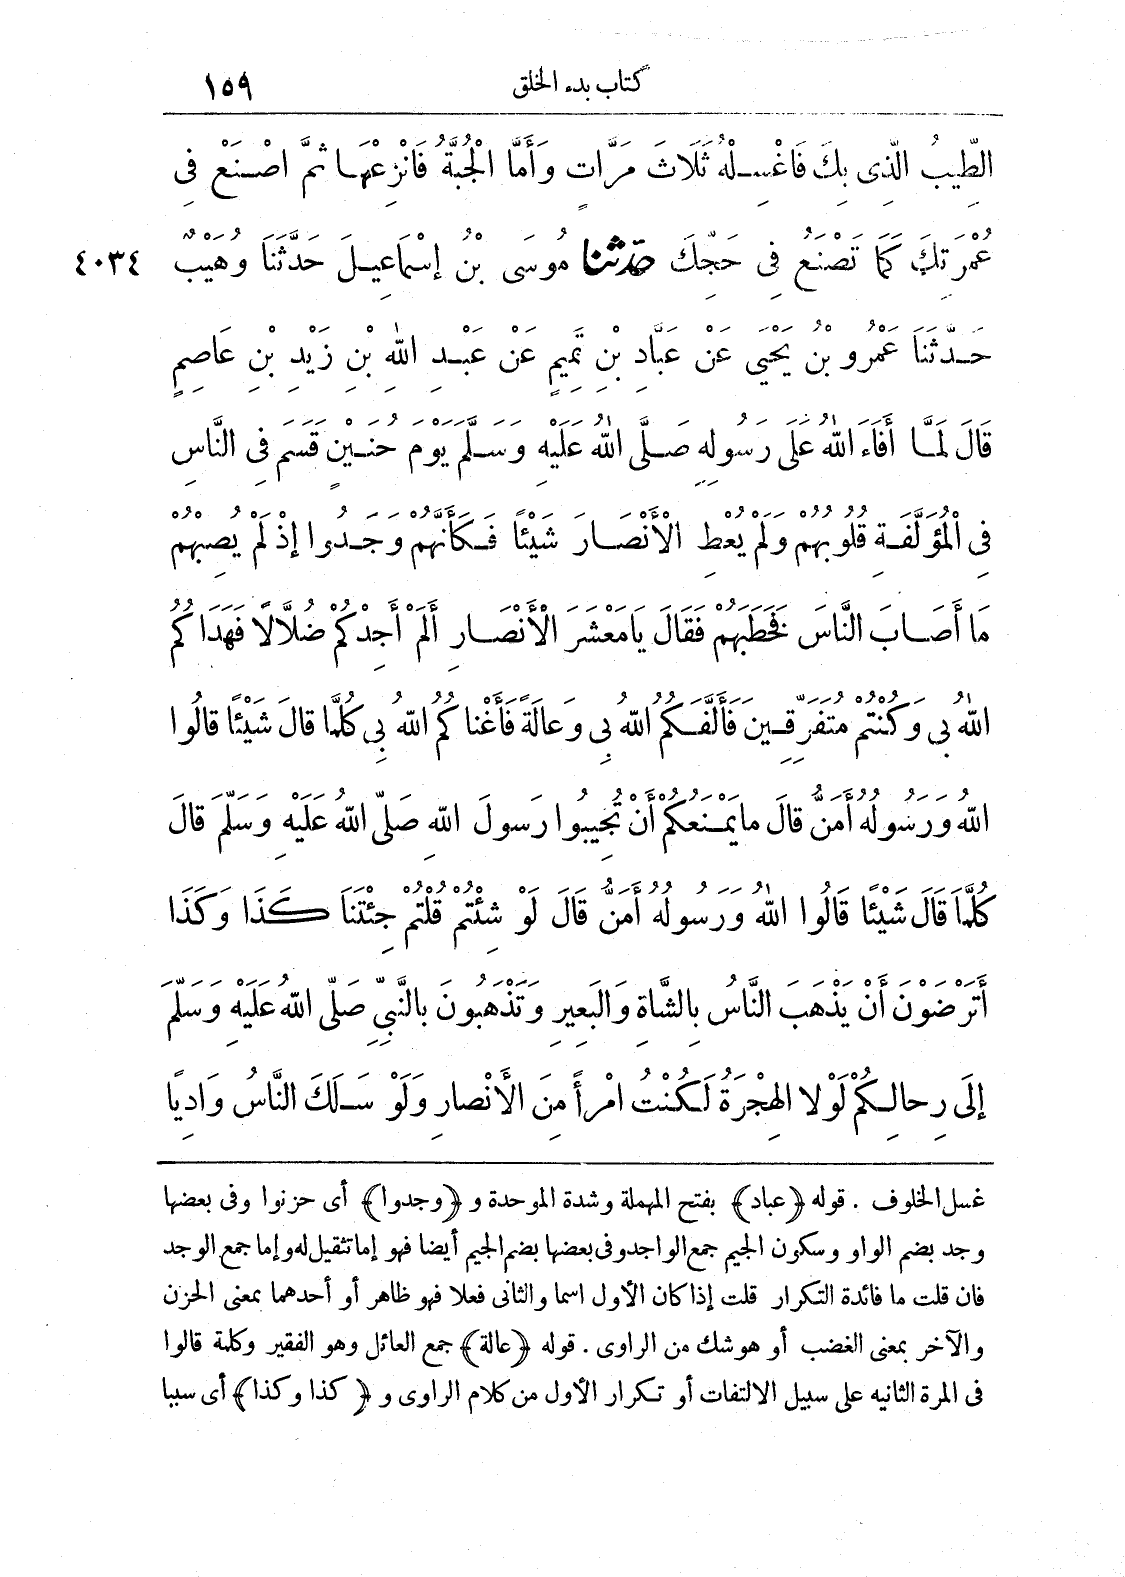 كتاب بدء الخلق ١٥٩
الطِّيبُ الَّذِى بِكَ فَاغْسِلْهُ ثَلَاثَ مَرَّاتٍ وَأَمَّا الْجُبَّةُ فَانْزِعْهَا ثُمَّ اصْنَعْ فِى
عُمْرَتِكَ كَمَا تَصْنَعُ فِى حَجِّكَ حدثنا مُوسَى بْنُ إِسْمَاعِيلَ حَدَّثَنَا وُهَيْبٌ ٤٠٣٤
حَدَّثَنَا عَمْرُو بْنُ يَحْيَى عَنْ عَبَّادِ بْنِ تَمِيمٍ عَنْ عَبْدِ اللهِ بْنِ زَيْدِ بْنِ عَاصِمٍ
قَالَ لَمَّا أَفَاءَ اللهُ عَلَى رَسُولِهِ صَلَّى اللهُ عَلَيْهِ وَسَلَّمَ يَوْمَ حُنَيْنٍ قَسَمَ فِى النَّاسِ
فِى الْمُؤَلَّفَةِ قُلُوبُهُمْ وَلَمْ يُعْطِ الْأَنْصَارَ شَيْئًا فَكَأَنَّهُمْ وَجَدُوا إِذْ لَمْ يُصِبْهُمْ
مَا أَصَابَ النَّاسَ فَخَطَبَهُمْ فَقَالَ يَا مَعْشَرَ الْأَنْصَارِ أَلَمْ أَجِدْكُمْ ضُلَّالًا فَهَدَاكُمُ
اللهُ بِى وَكُنْتُمْ مُتَفَرِّقِينَ فَأَلَّفَكُمُ اللهُ بِى وَعَالَةً فَأَغْنَاكُمُ اللهُ بِى كُلَّمَا قَالَ شَيْئًا قَالُوا
اللهُ وَرَسُولُهُ أَمَنُّ قَالَ مَا يَمْنَعُكُمْ أَنْ تُجِيبُوا رَسُولَ اللهِ صَلَّى اللهُ عَلَيْهِ وَسَلَّمَ قَالَ
كُلَّمَا قَالَ شَيْئًا قَالُوا اللهُ وَرَسُولُهُ أَمَنُّ قَالَ لَوْ شِئْتُمْ قُلْتُمْ جِئْتَنَا كَذَا وَكَذَا
أَتَرْضَوْنَ أَنْ يَذْهَبَ النَّاسُ بِالشَّاةِ وَالْبَعِيرِ وَتَذْهَبُونَ بِالنَّبِىِّ صَلَّى اللهُ عَلَيْهِ وَسَلَّمَ
إِلَى رِحَالِكُمْ لَوْلَا الْهِجْرَةُ لَكُنْتُ امْرَأً مِنَ الْأَنْصَارِ وَلَوْ سَلَكَ النَّاسُ وَادِيًا
غسل الخلوف . قوله ﴿عباد﴾ بفتح المهملة وشدة الموحدة و ﴿وجدوا﴾ أى حزنوا وفى بعضها
وجد بضم الواو وسكون الجيم جمع الواجد وفى بعضها بضم الجيم أيضا فهو إما تثقيل له وإما جمع الوجد
فان قلت ما فائدة التكرار قلت إذا كان الأول اسما والثانى فعلا فهو ظاهر أو أحدهما بمعنى الحزن
والآخر بمعنى الغضب أو هو شك من الراوى . قوله ﴿عالة﴾ جمع العائل وهو الفقير وكلمة قالوا
فى المرة الثانيه على سبيل الالتفات أو تكرار الأول من كلام الراوى و ﴿كذا وكذا﴾ أى سببا